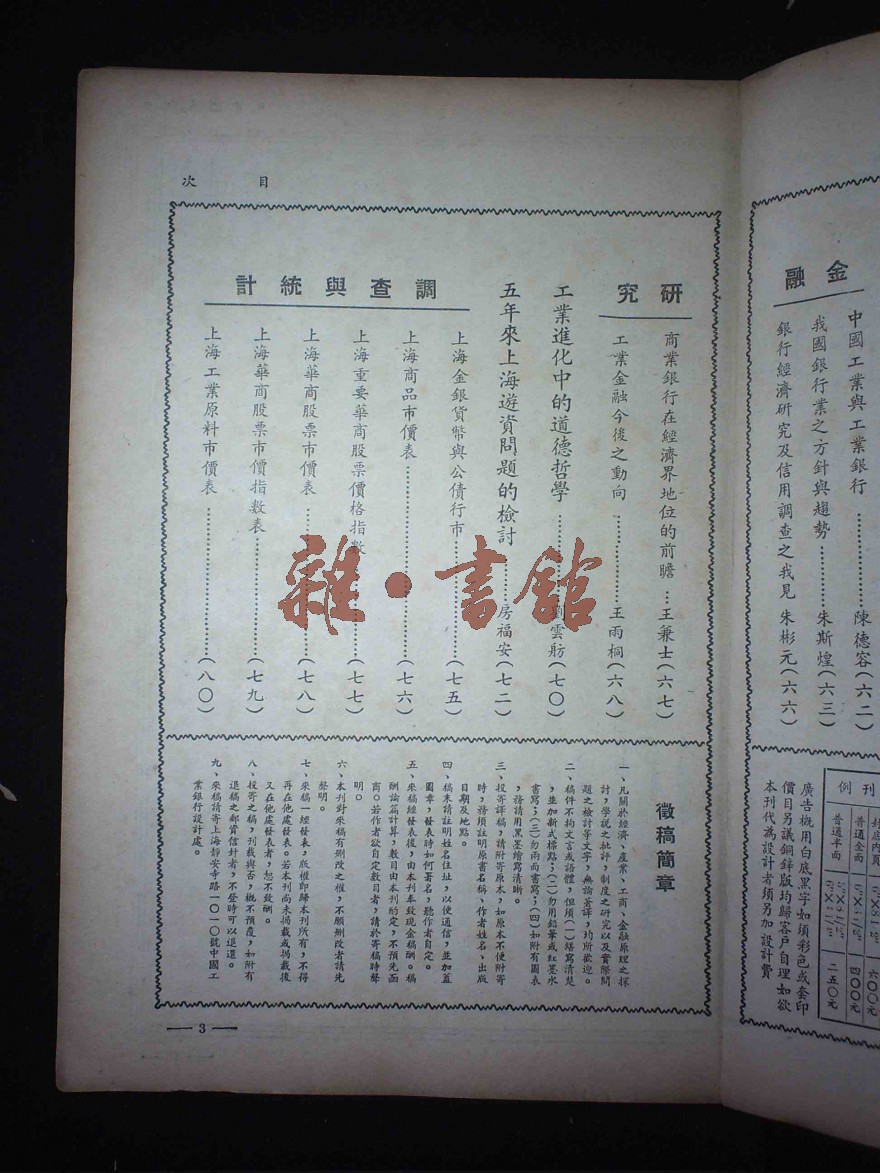 目次
研究
商業銀行在經濟界地位的前瞻…王兼士(六七)
工業金融今後之動向…………王雨桐(六八)
工業進化中的道德哲學………劉雲舫(七〇)
五年來上海遊資問題的檢討……房福安(七二)
調查與統計
上海金銀貨幣與公債行市…………(七五)
上海商品市價表…………(七六)
上海重要華商股票價格指數…………(七七)
上海華商股票市價表…………(七八)
上海華商股票市價指數表…………(七九)
上海工業原料市價表…………(八〇)
徵稿簡章
一、凡關於經濟、產業、工商、金融原理之探
討,學說之批評,制度之研究以及實際問
題之檢討等文字,無論著譯,均所歡迎。
二、稿件不拘文言或語體,但須(一)繕寫清楚
,並加新式標點;(二)勿用鉛筆或紅墨水
書寫;(三)勿兩面書寫;(四)如附有圖表
,務請用黑墨繪寫清晰。
三、投寄譯稿,請附寄原本,如原本不便附寄
時,務須註明原書名稱、作者姓名、出版
日期及地點。
四、稿末請註明姓名住址,以便通信,並加蓋
圖章,發表時如何署名,聽作者自定。
五、來稿經發表後,由本刊奉致現金稿酬。稿
酬論篇計算,數目由本刊酌定,不預先函
商。若作者欲自定數目者,請於寄稿時聲
明。
六、本刊對來稿有刪改之權,不願刪改者請先
聲明。
七、來稿一經發表,版權即歸本刊所有,不得
再在他處發表。若本刊尚未揭載或揭載後
又在他處發表者,恕不致酬。
八、投寄之稿,刊載與否,概不預覆,如附有
退稿之郵資信封者,不登時可以退還。
九、來稿請寄上海靜安寺路一〇一〇號中國工
業銀行設計處。
3
雜·書館
金融
中國工業與工業銀行…………陳德容(六二)
我國銀行業之方針與趨勢………朱斯煌(六三)
銀行經濟研究及信用調查之我見 朱彬元(六六)
刊例
封底內頁 六〇〇元
普通全面 四〇〇元
普通半面 二五〇元
廣告概用白底黑字如須彩色或套印
價目另議銅鋅版均歸客戶自理如欲
本刊代為設計者須另加設計費